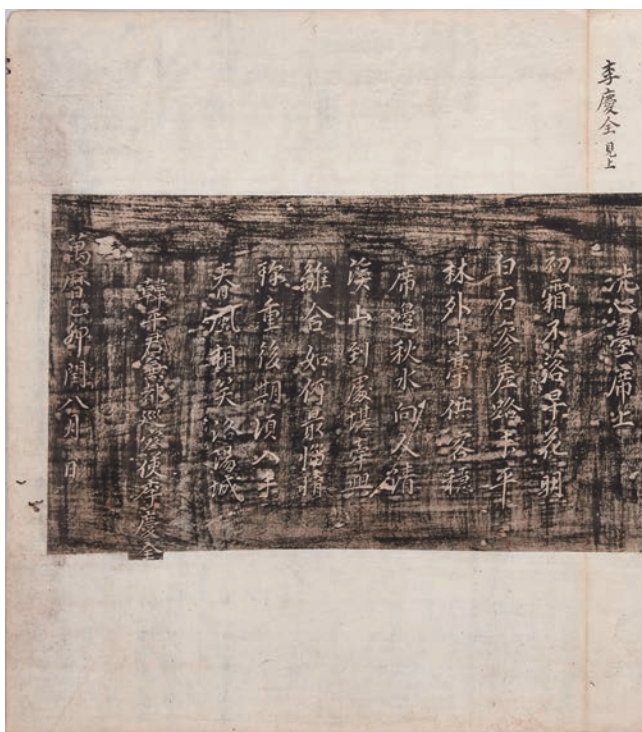 李慶全 見上
洗心臺席上
初霜不落早花明
白石參差路未平
林外小亭供客穩
席邊秋水向人清
溪山到處堪牽興
離合如何最惱情
珎重後期須入手
春風相笑洛陽城
韓平君都巡察使李慶全
萬曆乙卯閏八月 日